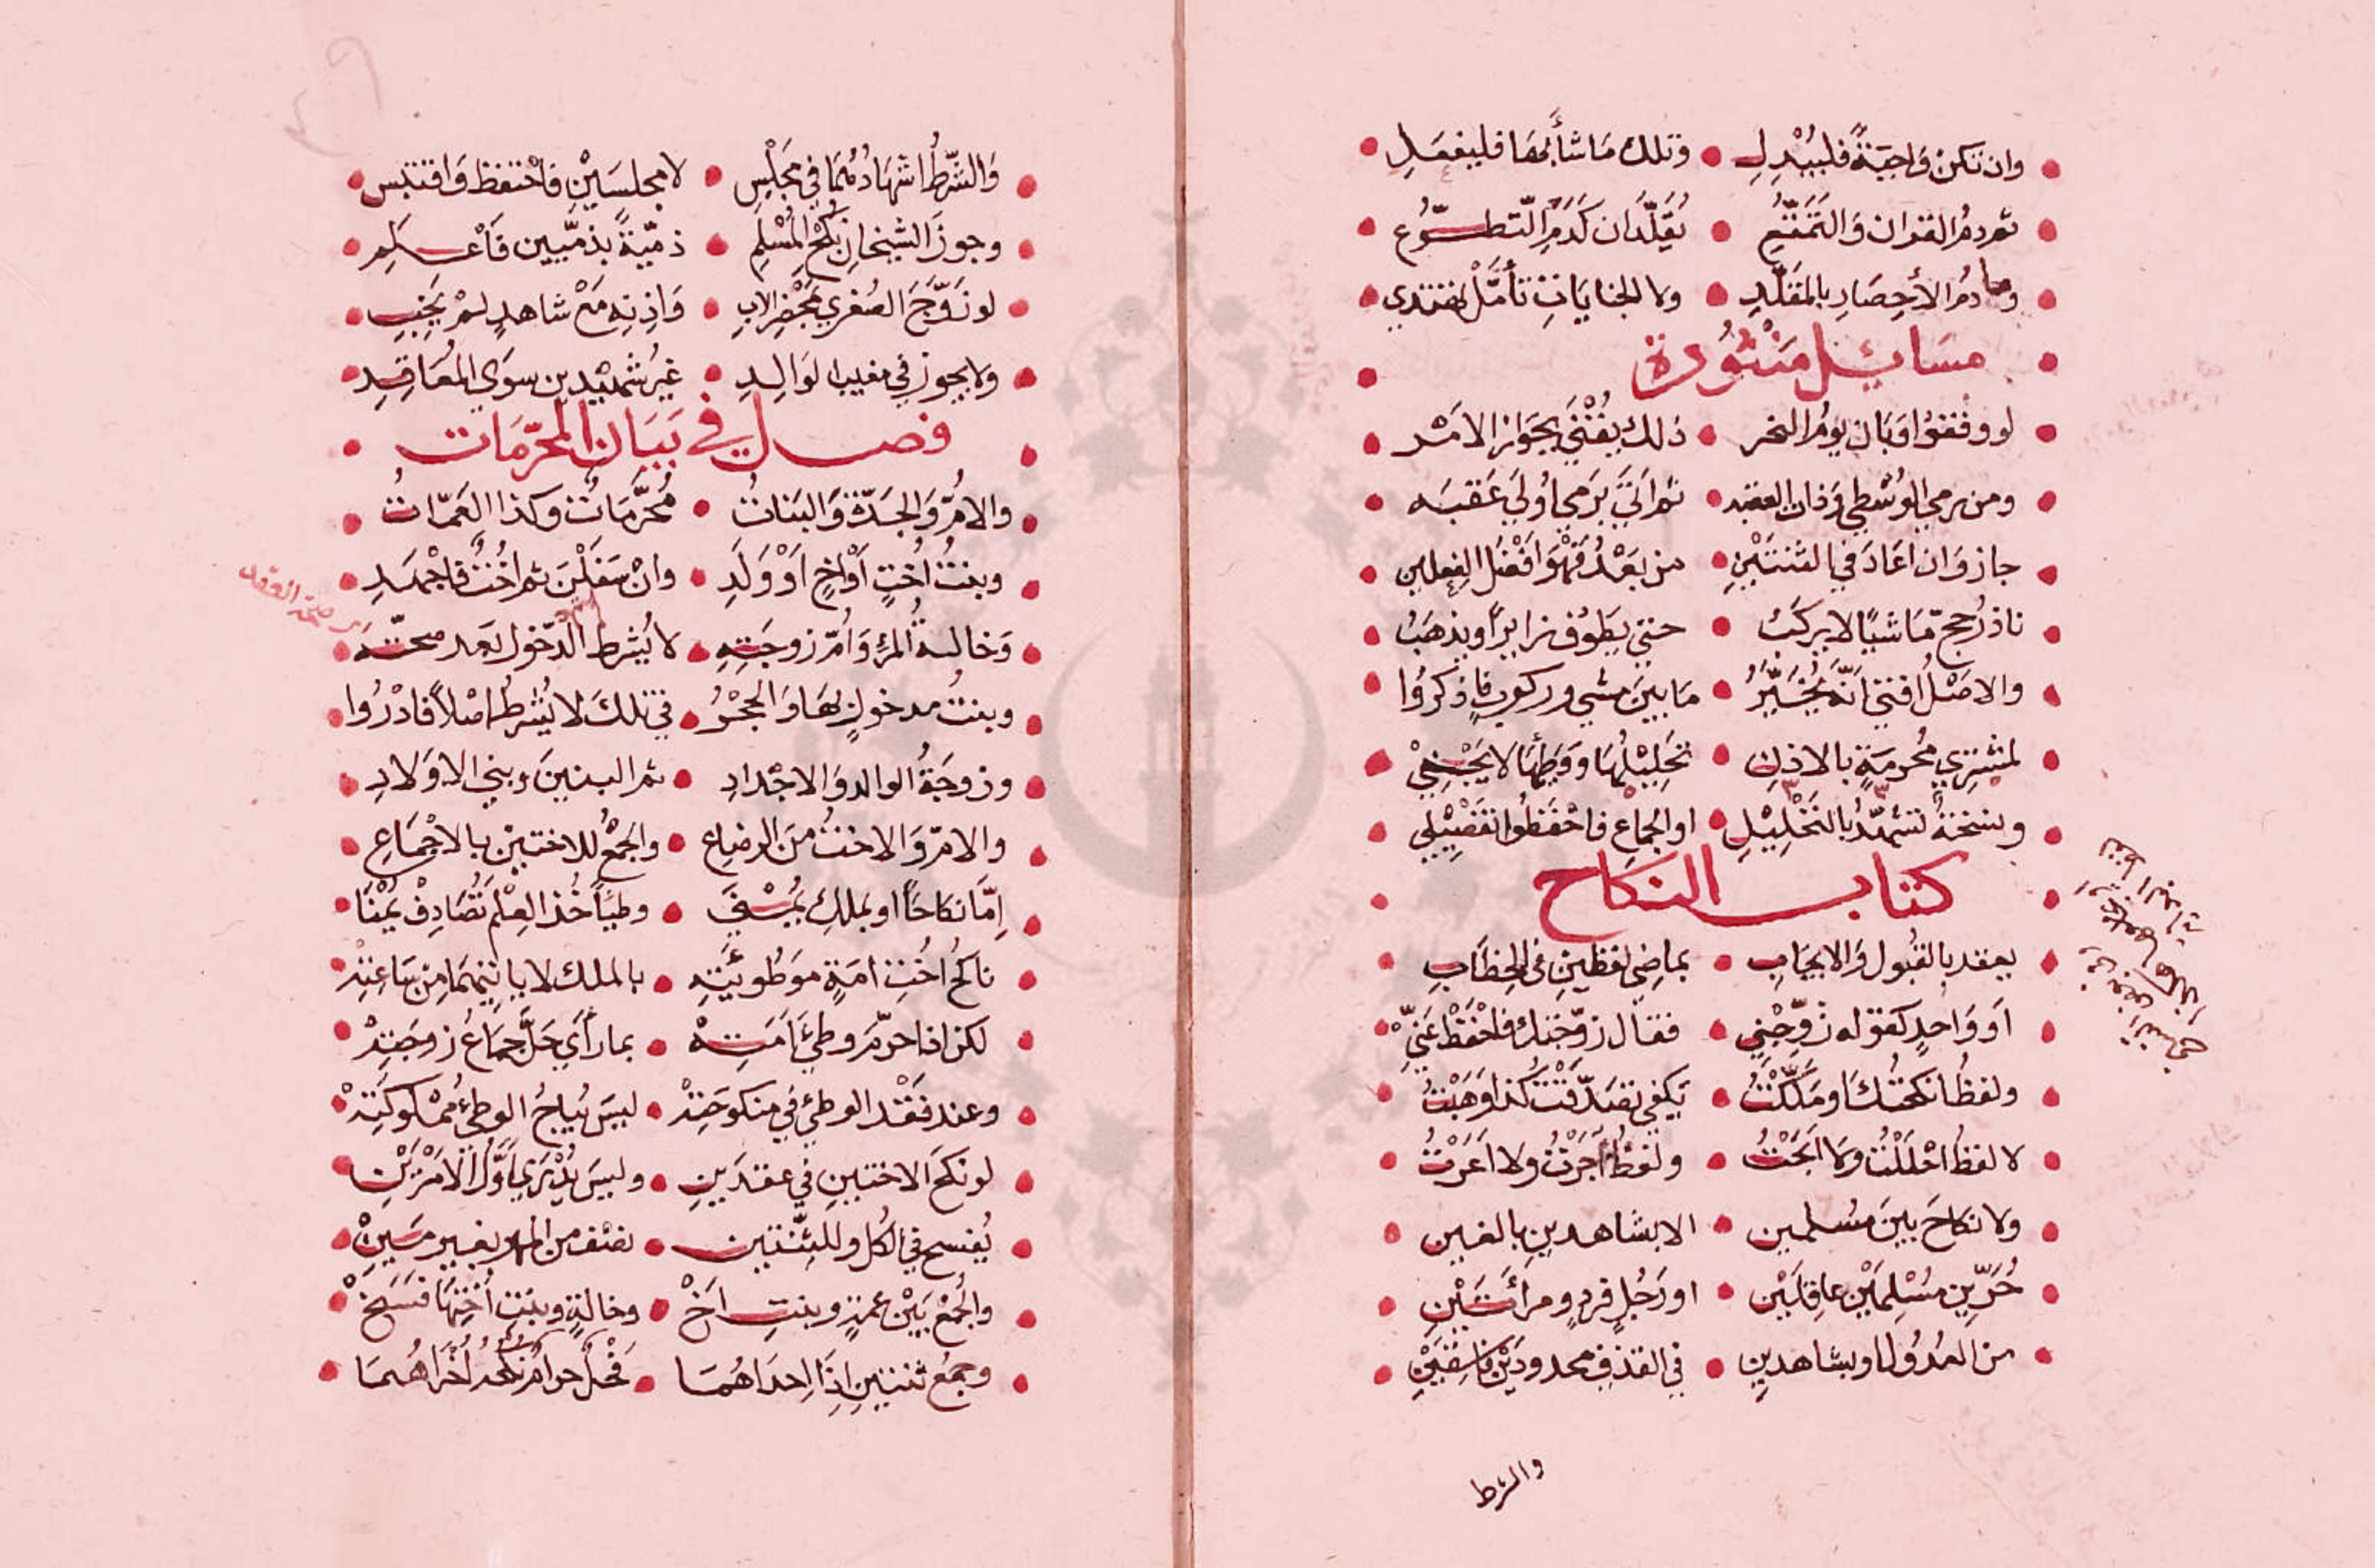 وان تكن واجبة فليبدل • وتلك ماشا بها فليفعل
ثم دم القران والتمتع • يقلدان كدم التطوع
وما دم الأحصار بالمقلد • ولا الجنايات تأمل تهتدي
مسائل منثورة
لو وقفوا وبان يوم النحر • ذلك يفتى بجواز الامر
ومن رمى الوسطى وذات العقبه • ثم اتى برمي اولى عقبه
جاز وان اعاد في الثنتين • من بعد فهو افضل الفعلين
ناذر حج ماشيا لا يركب • حتى يطوف زايرا ويذهب
والاصل افتى انه يخير • ما بين مشي وركوب فاذكروا
لمشتري محرمة بالاذن • تحليلها ووطئها لا يجني
ونسخة تشهد بالتحليل • او الجماع فاحفظوا تفصيلي
كتاب النكاح
يعقد بالقبول والايجاب • بماضي لفظين في الخطاب
او واحد كقوله زوجني • فقال زوجتك فاحفظ عني
ولفظ انكحتك او ملكت • يكفي تصدقت كذا وهبت
لا لفظ احللت ولا ابحت • ولفظ اجرت ولا اعرت
ولا نكاح بين مسلمين • الا بشاهدين بالغين
حرين مسلمين عاقلين • او رجل فرد ومرأتين
من العدول او بشاهدين • في القذف محدودين فاسقين
والشرط
والشرط اشهادهما في مجلس • لا مجلسين فاحتفظ واقتبس
وجوز الشيخان نكح المسلم • ذمية بذميين فاعلم
لو زوج الصغرى بمحضر الاب • واذنه مع شاهد لم يخب
ولا يجوز في مغيب الوالد • غير شهيدين سوى المعاقد
فصل في بيان المحرمات
والام والجدة والبنات • محرمات وكذا العمات
وبنت اخت او اخ او ولد • وان سفلن ثم اخت فاجهد
وخالة المرء وام زوجته • لا يشرط الدخول بعد صحته
صحة العقد
وبنت مدخول بها والحجر • في تلك لا يشرط اصلا فادروا
وزوجة الوالد والاجداد • ثم البنين وبني الاولاد
والام والاخت من الرضاع • والجمع للاختين بالاجماع
اما نكاحا او بملك يمنى • وطيئا خذ العلم تصادف يمنا
ناكح اخت امة موطوئته • بالملك لا ياتيهما من ساعته
لكن اذا حرم وطئ امته • بما رأى حل جماع زوجته
وعند فقد الوطئ في منكوحته • ليس يباح الوطئ مملوكته
لو نكح الاختين في عقدين • وليس يدرى اول الامرين
يفسخ في الكل وللثنتين • نصف من المهر بغير مين
والجمع بين عمة وبنت اخ • وخالة وبنت اختها فسخ
وجمع ثنتين اذا احداهما • فحل حرام نكحه اخراهما